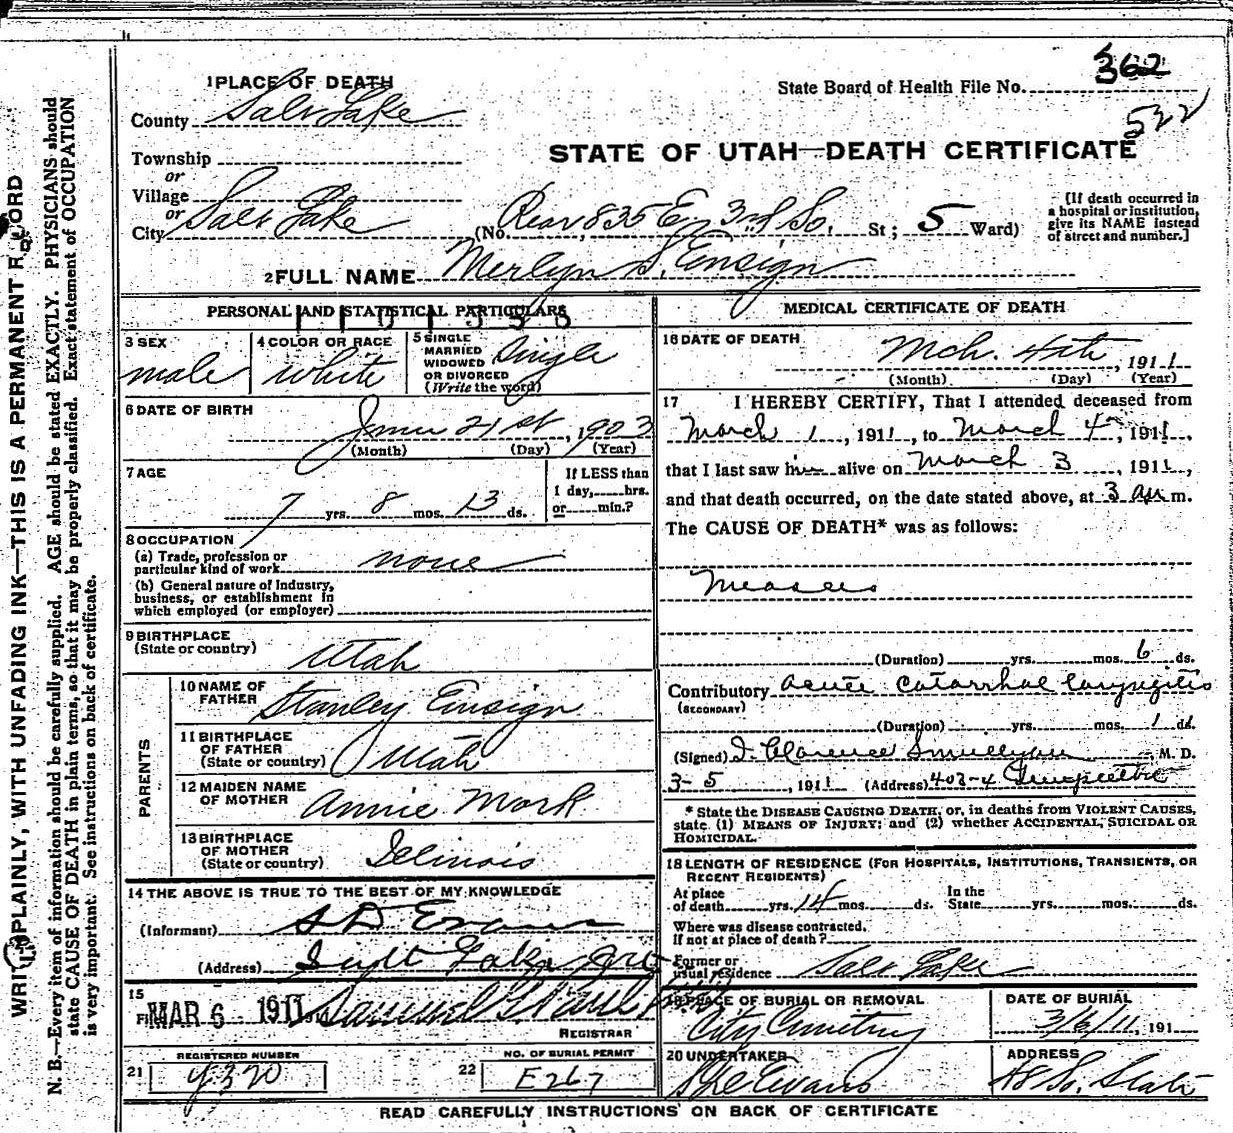 WRITE PLAINLY, WITH UNFADING INK—THIS IS A PERMANENT RECORD
N. B.—Every item of information should be carefully supplied. AGE should be stated EXACTLY. PHYSICIANS should
state CAUSE OF DEATH in plain terms, so that it may be properly classified. Exact statement of OCCUPATION
is very important. See instructions on back of certificate.
1 PLACE OF DEATH
State Board of Health File No. 362
522
County Salt Lake
STATE OF UTAH—DEATH CERTIFICATE
Township
or
Village
or
City Salt Lake (No. Rear 835 E. 3rd So. St; 5 Ward)
[If death occurred in
a hospital or institution,
give its NAME instead
of street and number.]
2 FULL NAME Merlyn S. Ensign
PERSONAL AND STATISTICAL PARTICULARS
3 SEX male
4 COLOR OR RACE white
5 SINGLE
MARRIED
WIDOWED
OR DIVORCED
(Write the word) Single
6 DATE OF BIRTH
June 21st, 1903
(Month) (Day) (Year)
7 AGE
7 yrs. 8 mos. 13 ds.
If LESS than
1 day, hrs.
or min.?
8 OCCUPATION
(a) Trade, profession or
particular kind of work none
(b) General nature of Industry,
business, or establishment in
which employed (or employer)
9 BIRTHPLACE
(State or country) Utah
PARENTS
10 NAME OF
FATHER Stanley Ensign
11 BIRTHPLACE
OF FATHER
(State or country) Utah
12 MAIDEN NAME
OF MOTHER Annie Mork
13 BIRTHPLACE
OF MOTHER
(State or country) Illinois
14 THE ABOVE IS TRUE TO THE BEST OF MY KNOWLEDGE
(Informant) S D Evans
(Address) Lake
15
MAR 6 1911 Samuel G Paul
REGISTRAR
REGISTERED NUMBER
21
NO. OF BURIAL PERMIT
22 E267
MEDICAL CERTIFICATE OF DEATH
16 DATE OF DEATH
Mch. 4th, 1911
(Month) (Day) (Year)
17 I HEREBY CERTIFY, That I attended deceased from
March 1, 1911, to March 4, 1911,
that I last saw him alive on March 3, 1911,
and that death occurred, on the date stated above, at 3 am m.
The CAUSE OF DEATH* was as follows:
Measles
(Duration) yrs. mos. 6 ds.
Contributory acute catarrhal laryngitis
(SECONDARY)
(Duration) yrs. mos. 1 ds.
(Signed) Clarence, M. D.
3-5, 1911 (Address) 403-4
* State the DISEASE CAUSING DEATH, or, in deaths from VIOLENT CAUSES,
state (1) MEANS OF INJURY; and (2) whether ACCIDENTAL, SUICIDAL OR
HOMICIDAL.
18 LENGTH OF RESIDENCE (FOR HOSPITALS, INSTITUTIONS, TRANSIENTS, OR
RECENT RESIDENTS)
At place
of death yrs. 14 mos. ds.
In the
State yrs. mos. ds.
Where was disease contracted,
if not at place of death?
Former or
usual residence Salt Lake
19 PLACE OF BURIAL OR REMOVAL
City Cemetery
DATE OF BURIAL
3/6/11, 191
20 UNDERTAKER
Evans
ADDRESS
48 So. State
READ CAREFULLY INSTRUCTIONS ON BACK OF CERTIFICATE